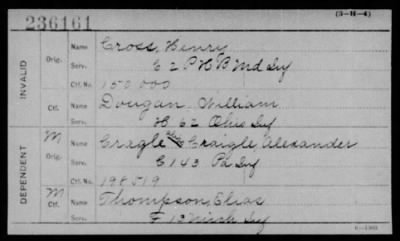 236161
(3-H-4)
INVALID
DEPENDENT
Orig. Name Cross, Henry
Serv. E 2 P H B Md Inf
Ctf. No. 150 000
Ctf. Name Dougan William
Serv. H 62 Ohio Inf
M
Orig. Name Cragle alias Craigle, Alexander
Serv. C 143 Pa Inf
Ctf. No. 198519
M
Ctf. Name Thompson, Elias
Serv. F 13 Mich Inf